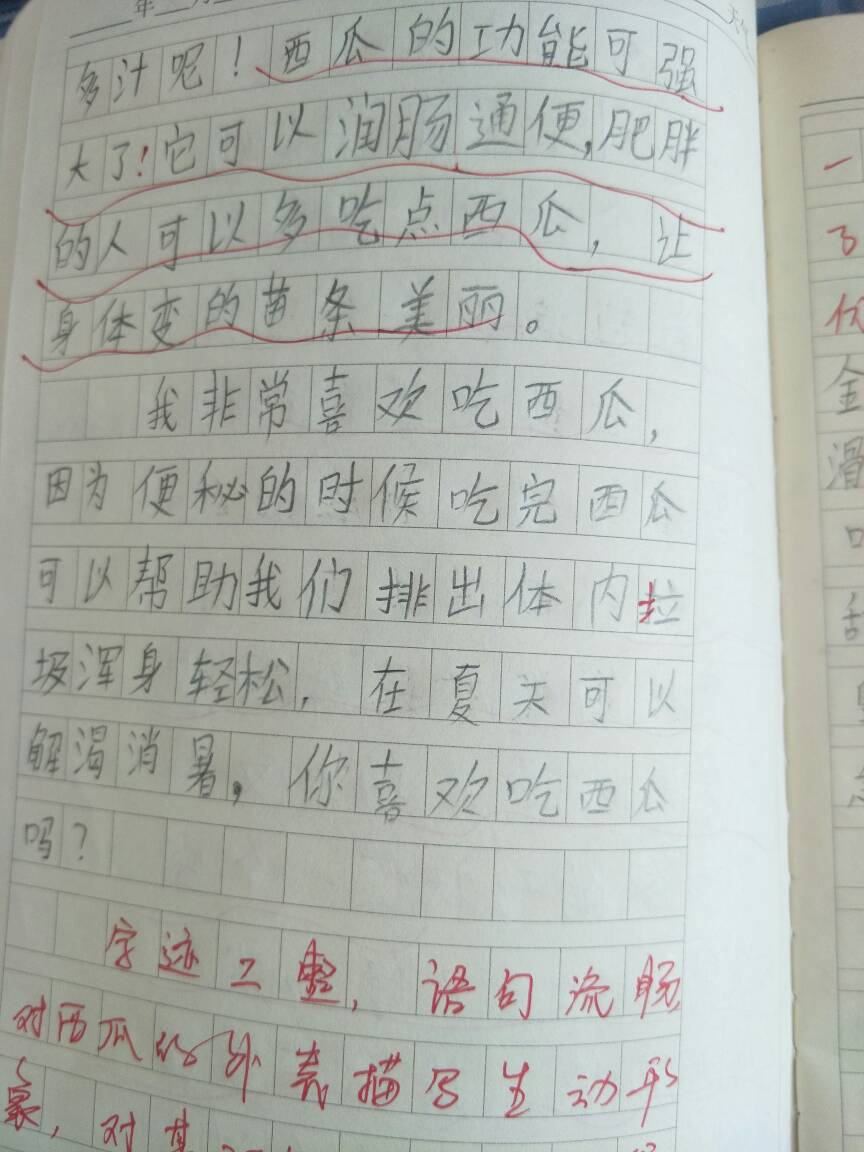 年 月
多汁呢！西瓜的功能可强
大了！它可以润肠通便，肥胖
的人可以多吃点西瓜，让
身体变的苗条美丽。
我非常喜欢吃西瓜，
因为便秘的时候吃完西瓜
可以帮助我们排出体内垃
圾浑身轻松，在夏天可以
解渴消暑，你喜欢吃西瓜
吗？
字迹工整，语句流畅
对西瓜的外表描写生动形
象，对其
一
了
伏
金
滑
口